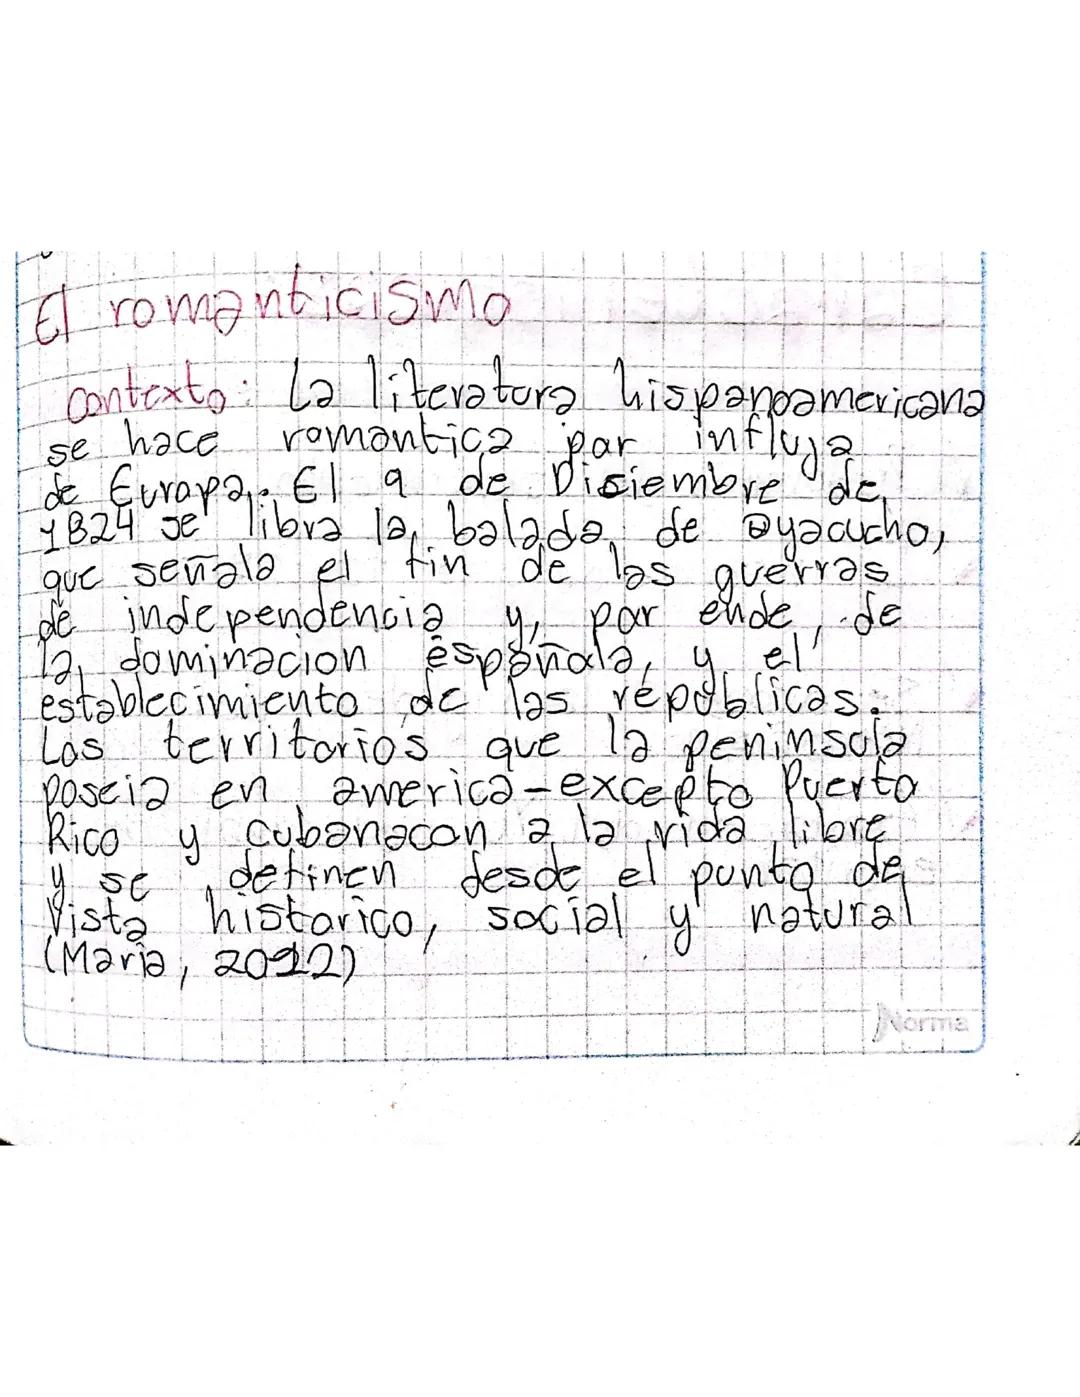 El romanticismo
contexto: La literatura hispanoamericana
se hace romantica par influja
de Europa. El 9 de Disiembre de
1824 se libra la balada de ayacucho,
que señala el fin de las guerras
de independencia y, par ende, de
la dominacion española, y el
establecimiento de las republicas.
Las territorios que la peninsula
poseia en america-excepto Puerto
Rico y Cubanacon a la vida libre
y se definen desde el punto de
Vista historico, social y natural
(Maria, 2022)
Norma